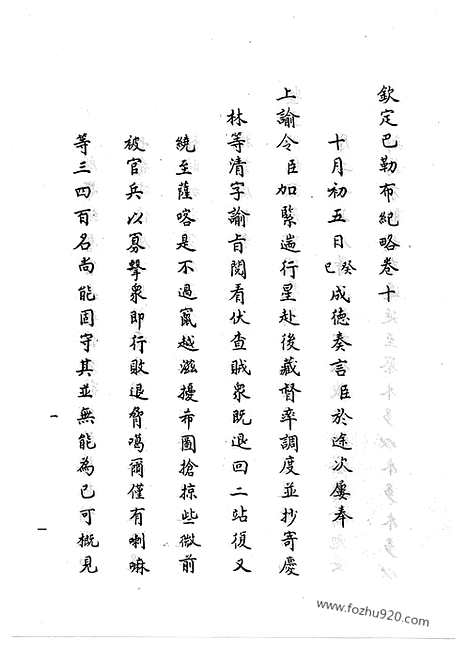 欽定巴勒布紀略卷十
十月初五日癸巳成德奏言臣於途次屢奉
上諭令臣加緊遄行星赴後藏督率調度並抄寄慶
林等清字諭旨閱看伏查賊衆既退回二站復又
繞至薩喀是不過竄越滋擾希圖搶掠些微前
被官兵以寡擊衆即行敗退脅噶爾僅有喇嘛
等三四百名尚能固守其並無能為已可概見
一
www.fozhu920.com